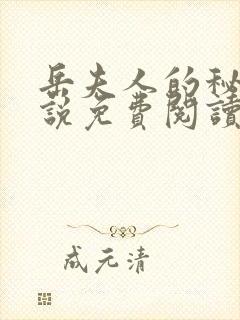 岳夫人的秘
說免費閱讀
成元清